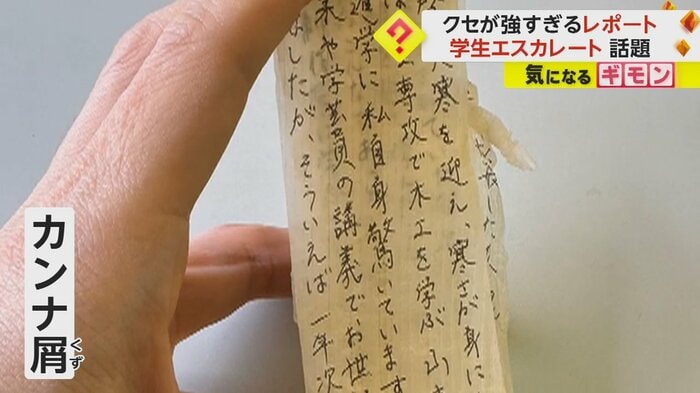 クセが強すぎるレポート
学生エスカレート 話題
気になるギモン
?
カンナ屑
くず
寒を迎え、寒さが身に
専攻で木工を学ぶ
進学に私自身驚いています
来や学芸員の講義でお世
したが、そういえば一年次